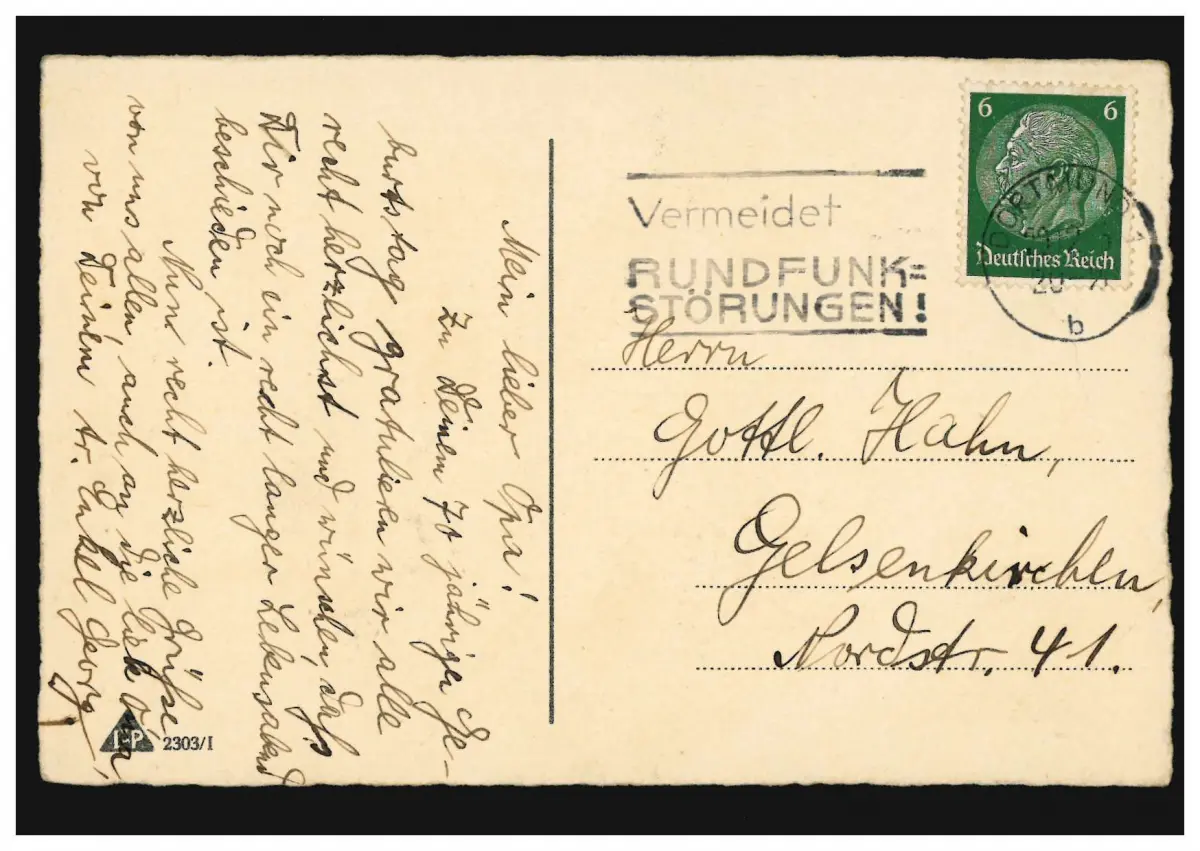 Mein lieber Opa!
Zu Deinem 70 jährigen Ge-
burtstag gratulieren wir alle
recht herzlichst und wünschen, daß
Dir noch ein recht langer Lebensabend
beschieden ist.
Nun recht herzliche Grüße
von uns allen, auch an die liebe Oma,
von Deinem tr. Enkel Georg
LP 2303/I
Vermeidet
RUNDFUNK=
STÖRUNGEN!
6 6
Deutsches Reich
DORTMUND
b
Herrn
Gottl. Hahn,
Gelsenkirchen,
Nordstr. 41.